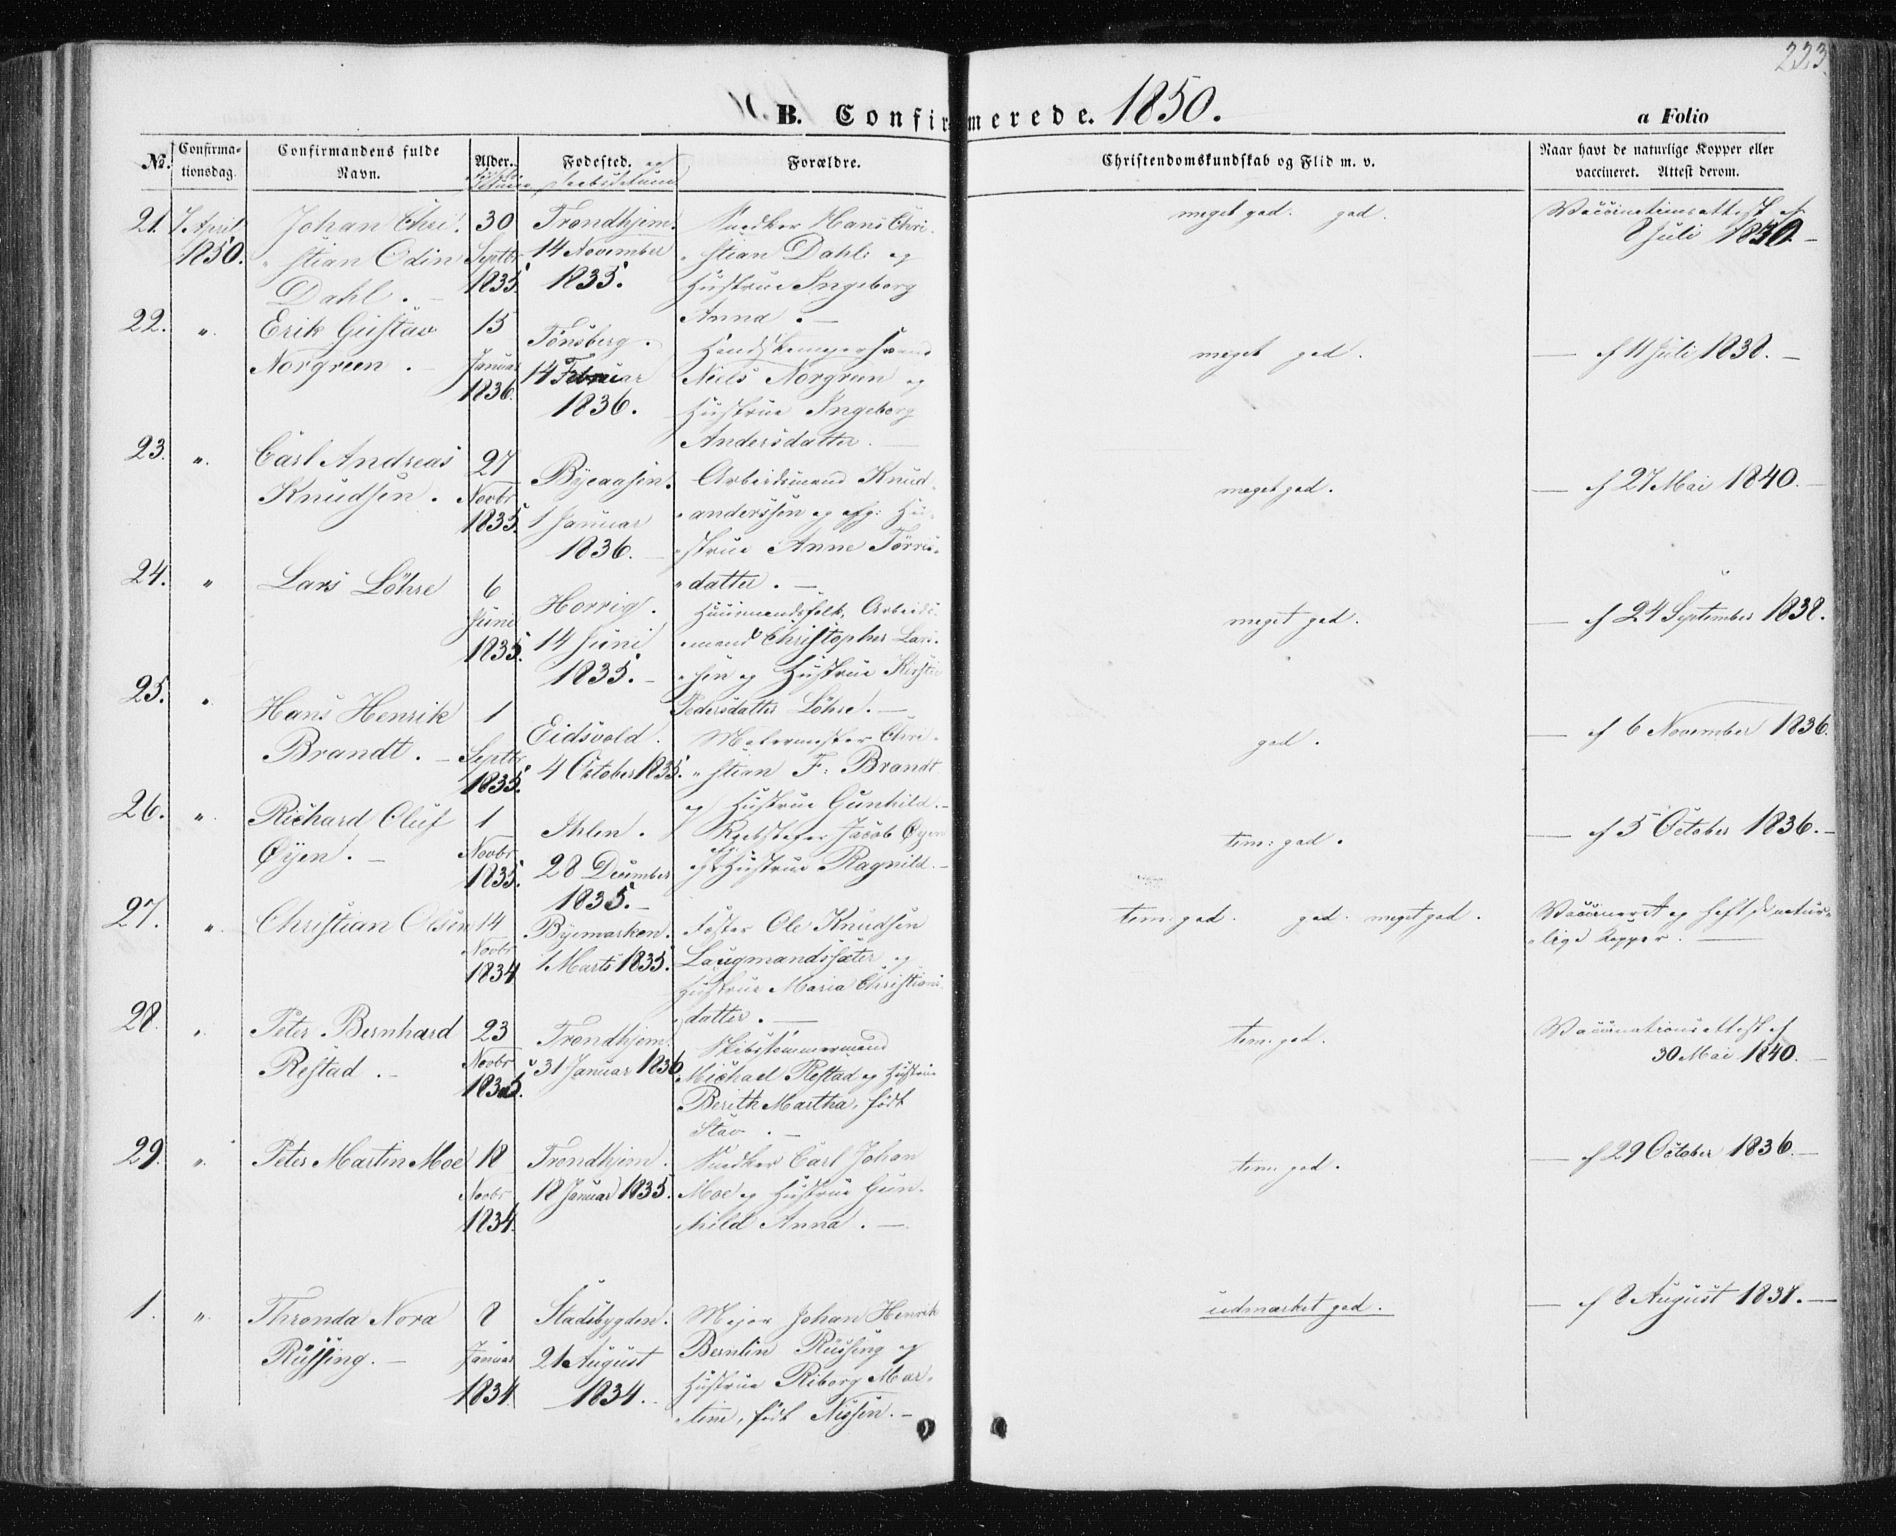 223.
B. Confirmerede. 1850.
a Folio
No. Confirmationsdag. Confirmandens fulde Navn. Alder. Fødested. og Forældre. Christendomskundskab og Flid m. v. Naar havt de naturlige Kopper eller vaccineret. Attest derom.
21. 7 April Johan Chri- 30 Trondhjem. Snedker Hans Chri- meget god. god. Vaccinationsattest af
1850. stian Odin Septbr 14 November stian Dahl og 8 Juli 1850.
Dahl. 1835. 1835. Hustrue Ingeborg
Anna.
22. " Erik Gustav 15 Tønsberg. Handskemagersvend meget god. — af 11 Juli 1838.
Norgreen. Januar 14 Februar Niels Norgreen og
1836. 1836. Hustrue Ingeborg
Andersdatter.
23. " Carl Andreas 27 Byeaasen. Arbeidsmand Knud meget god. — af 27 Mai 1840.
Knudsen. Novbr 1 Januar anderssen og afg: Hu-
1835. 1836. strue Anne Törris-
datter.
24. " Lars Löhre 6 Horrig. Huusmandsfolk, Arbeids- meget god. — af 24 September 1838.
Juni 14 Juni mand Christopher Lar-
1835. 1835. sen og Hustrue Kirsti
Pedersdatter Löhre.
25. " Hans Henrik 1 Eidsvold. Malermester Chri- god. — af 6 November 1836.
Brandt. Septbr 4 October 1835. stian F. Brandt
1835. og Hustrue Gunhild.
26. " Richard Oluf 1 Ihlen. Rebslager Jacob Øyen tem: god. — af 5 October 1836.
Øyen. Novbr 28 December og Hustrue Ragnild.
1835. 1835.
27. " Christian Olsen 14 Byemarken. Foster Ole Knudsen tem: god. god. meget god. Vaccineret og haft de natur-
Novbr 1 Marts 1835. Laugmandssæter og lige Kopper.
1834 Hustrue Maria Christians-
datter.
28. " Peter Bernhard 23 Trondhjem. Skibstømmermand tem: god. Vaccinationsattest af
Restad. Novbr 31 Januar 1836 Michael Restad og Hustrue 30 Mai 1840.
1835. Berith Martha, født
Stav.
29. " Peter Martin Moe 18 Trondhjem. Snedker Carl Johan tem: god. — af 29 October 1836.
Novbr 18 Januar 1835. Moe og Hustrue Gun-
1834. hild Anna.
1. " Thronda Nora 8 Stadsbygden. Major Johan Henrik udmærket god. — af 8 August 1838.
Rüssing. Januar 21 August Bernlin Rüssing og
1834. 1834. Hustrue Riborg Mar-
tine, født Nissen.